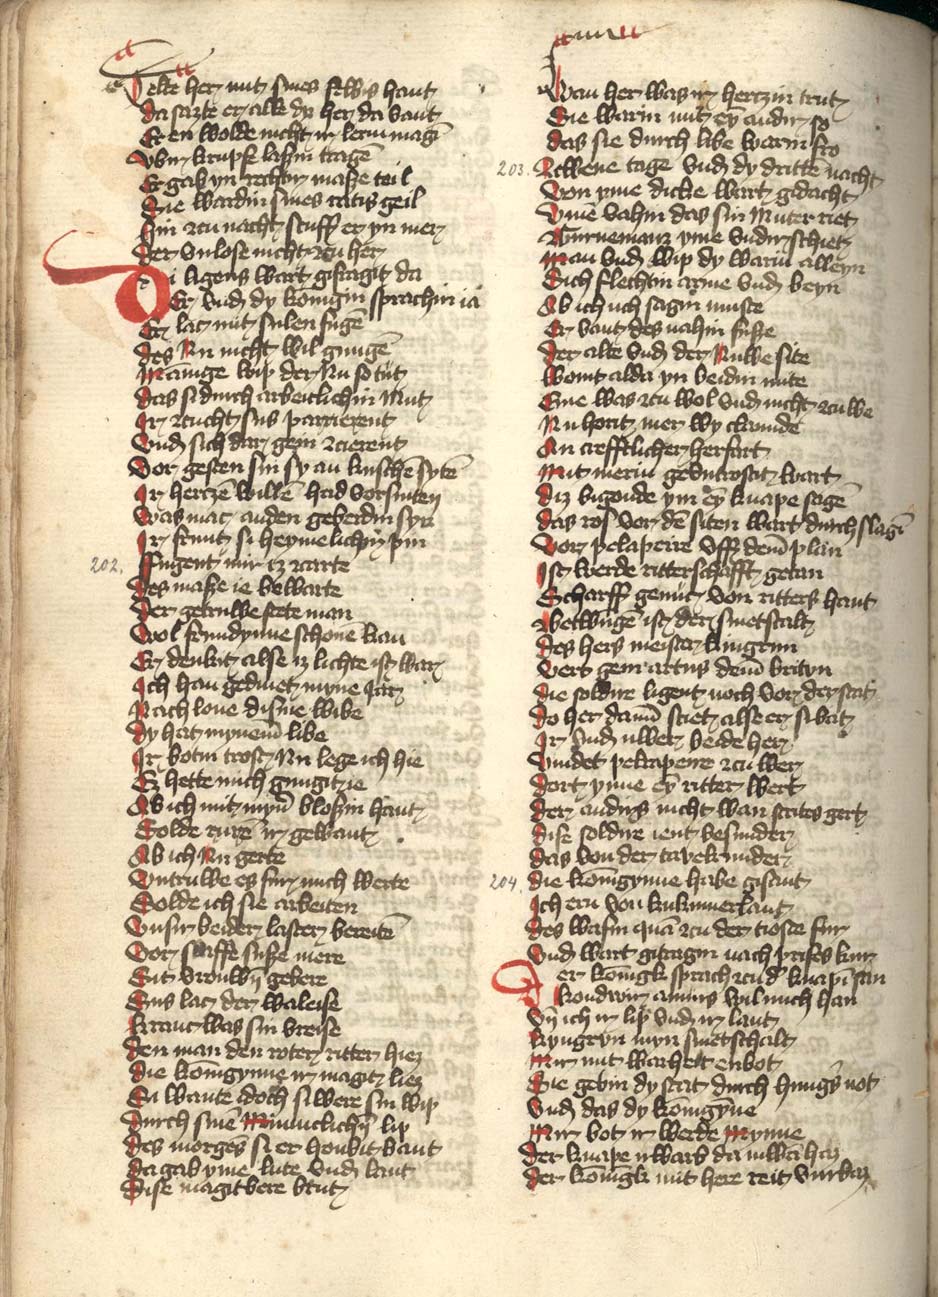 Teilte her mit sines selbis hant
Da sazte er alle dy her da vant
Er en wolde nicht ir lern magē
Vbir krupfe laßin tragē
Er gab yn rechtir maße teil
Sie wardin sines ratis geil
Hin zcu nacht schuff er yn mer
Der vnlose nicht zcu her
Bi ligens wart gifragit da
Er vnd dy konigin sprachin ia
Er lac mit sulen fugē
Des Nu nicht wil gnugē
Mānige wip der Nu so tut
Das si durch arbeitlichin Mut
Ir zcucht sus parrierent
Vnd sich dar gein zcierent
Vor gesten sin sy an kuschē sytē
Ir hertzē willē had vorsniten
Was mac an den geberdin syn
Ir frunt si heymelichyn pin
202.
Fugent mir iz zcarte
Des maße ie bewarte
Der getruwe stete man
Wol frundynne schonē kan
Er denkit alse iz lichte ist war
Ich han gedinet myne Jar
Nach lone disme wibe
Dy hat mynem̄ libe
Ir botin trost Nu lege ich hie
Er hette mich gnugit ie
Ab ich mit myn̄ bloßin hant
Solde rurē ir gewant
Ab ich Nu gerte
Vntruwe es fur mich werte
Solde ich sie arbeiten
Vnsir beider laster bereitē
Vor slaffe suße mere
Sit vrouwī gebere
Sus lac der waleise
Kranc was sin vreise
Den man den roten ritter hiez
Die konigynne er magit liez
Si wante doch si were sin wip
Durch sinē Minniclichī lip
Des morgēs si er houbit bant
Da gab yme lute vnd lant
Dise magitbere brut
Wan her was ir hertzin trut
Sie warin mit eyn andir so
Das sie durch libe warin fro
203.
Zcwene tage vnd dy drittē nacht
Von yme dicke wart gidacht
Vme vahin das sin Muter riet
Gurnemanz yme vndirschiet
Man vnd wip dy warin alleyn
Sich flechtin arme vnd beyn
Ab ich uch sagin muste
Er vant des nahin suße
Der alte vnd der Nuwe site
Wont alda yn beidin mite
Sine was zcu wol vnd nicht zcu we
Nu horit mer wy clamide
An crefftlicher herfart
Mit merin gevntrostit wart
Diz bigonde ym eyn knape sagē
Das ros vor dē siten wart durchslagī
Vor pelaperre vff dem̄ plan
Ist werde ritterschafft getan
Scharff genuc von ritters hant
Betwungē ist der sinetschalt
Des hers meister kingrun
Vert gein artus dem̄ brityn
Die soldnir ligent noch vor der stat
Do her dannē schiet alse er si bat
Ir vnd uwer beide her
Vindet pelrapeire zcu wer
Dort ynne eyn ritter wert
Der andirs nicht wan strites gert
Dise soldnir ient besundir
Das von der tavelrundir
204.
Die konigynne habe gisant
Ich ern von kukumerlant
Des wafin quā zcu der tioste fur
Vnd wart gitragin nach prises kur
Der konigk sprach zcu d' knapī san
Kondwir amurs wil mich han
Vn̄ ich ir lip vnd ir lant
Kyngryn myn sinetschalt
Mir mit warheit enbot
Sie gebin dy stat durch hungs not
Vnd das dy konigȳne
Mir bot ir werde Mynne
Der knape irwarb da niwā haz
Der konigk mit here reit vurbaz